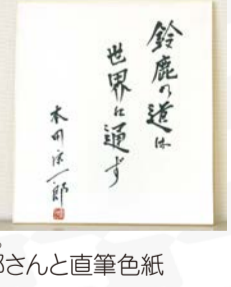 鈴鹿の道は
世界に通ず
本田宗一郎
郎さんと直筆色紙